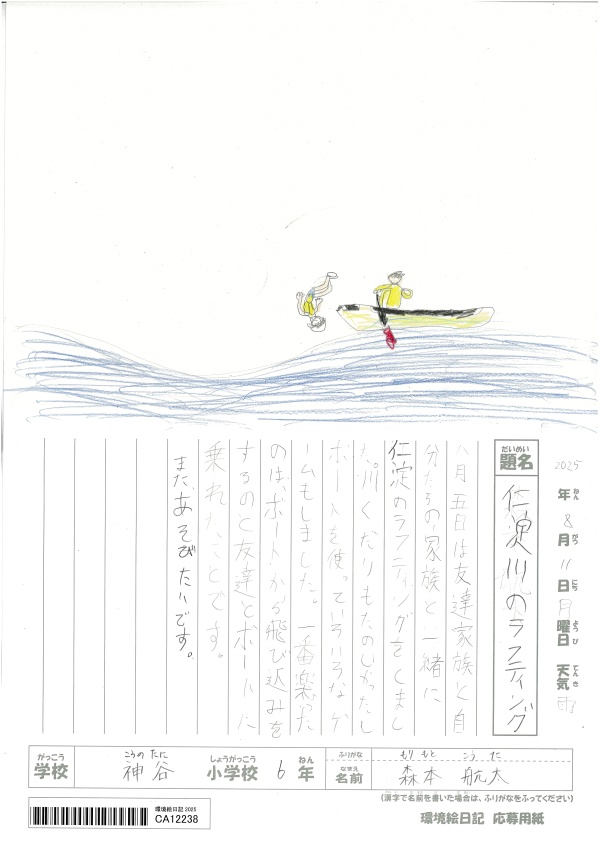 2025年8月11日月曜日 天気 雨
だいめい
題名
仁淀川のラフティング
八月五日は友達家族と自
分たちの家族と一緒に
仁淀のラフティングをしまし
た。川くだりもたのしかったし
ボートを使っていろいろなゲ
ームもしました。一番楽った
のは、ボートから飛び込みを
するのと友達とボートに
乗れたことです。
また、あそびたいです。
がっこう
学校
こうのたに
神谷
しょうがっこう
小学校
6
ねん
年
ふりがな
もりもと こうた
なまえ
名前
森本 航大
(漢字で名前を書いた場合は、ふりがなをふってください)
環境絵日記 2025
CA12238
環境絵日記 応募用紙